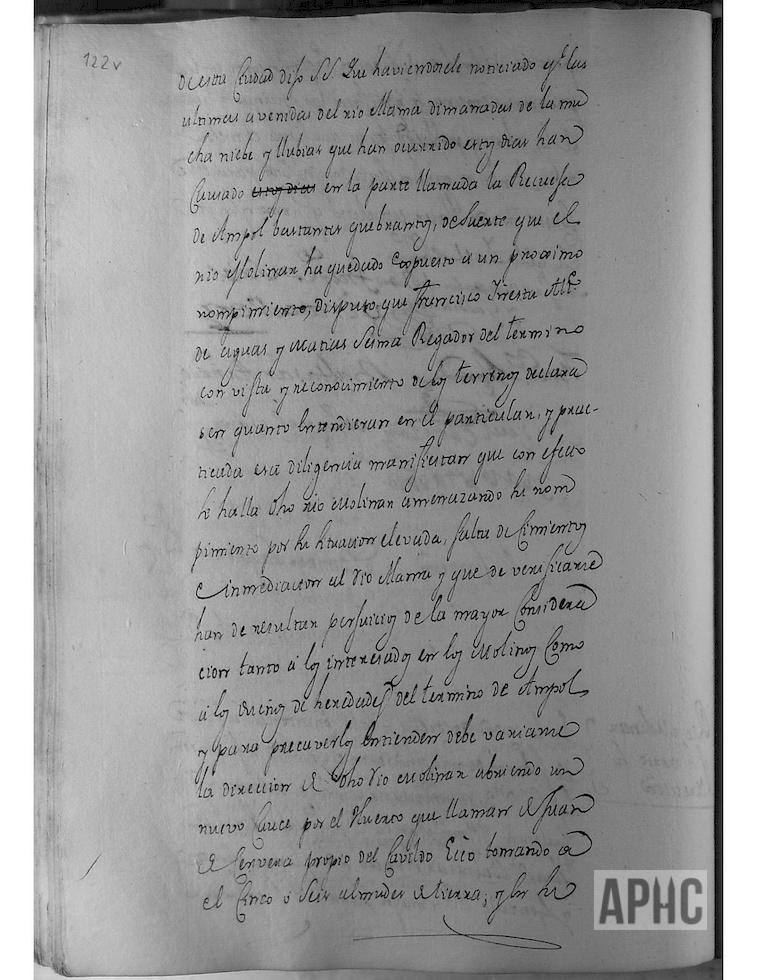 122v
de esta Ciudad dijo S.S. Que haviendosele noticiado q.e las
ultimas avenidas del rio Mama dimanadas de la mu
cha niebe y llubias que han ocurrido estos dias han
Causado estos dias en la parte llamada la Recuesta
de Ampol bastantes quebrantos, de suerte que el
rio Molinar ha quedado expuesto a un proximo
rompimiento, dispuso que Francisco Iriesta Alc.e
de aguas y Matias Sesma Regador del termino
con vista y reconocimiento de los terrenos declara
sen quanto entendieran en el particular, y prac-
ticada esa diligencia manifiestan que con efecto
se halla dho rio Molinar amenazando su rom
pimiento por su situacion elevada, falta de Cimientos
e inmediacion al rio Mama y que de verificarse
han de resultar perjuicios de la mayor Considera
cion tanto a los interesados en los Molinos Como
a los dueños de heredades del termino de Ampol,
y para precaverlos entienden debe variarse
la direccion de dho rio Molinar abriendo un
nuevo Cauce por el Huerto que llaman de Juan
de Cervera propio del Cavildo Ecco tomando de
el Cinco o Seis almudes de tierra; y su
APHC